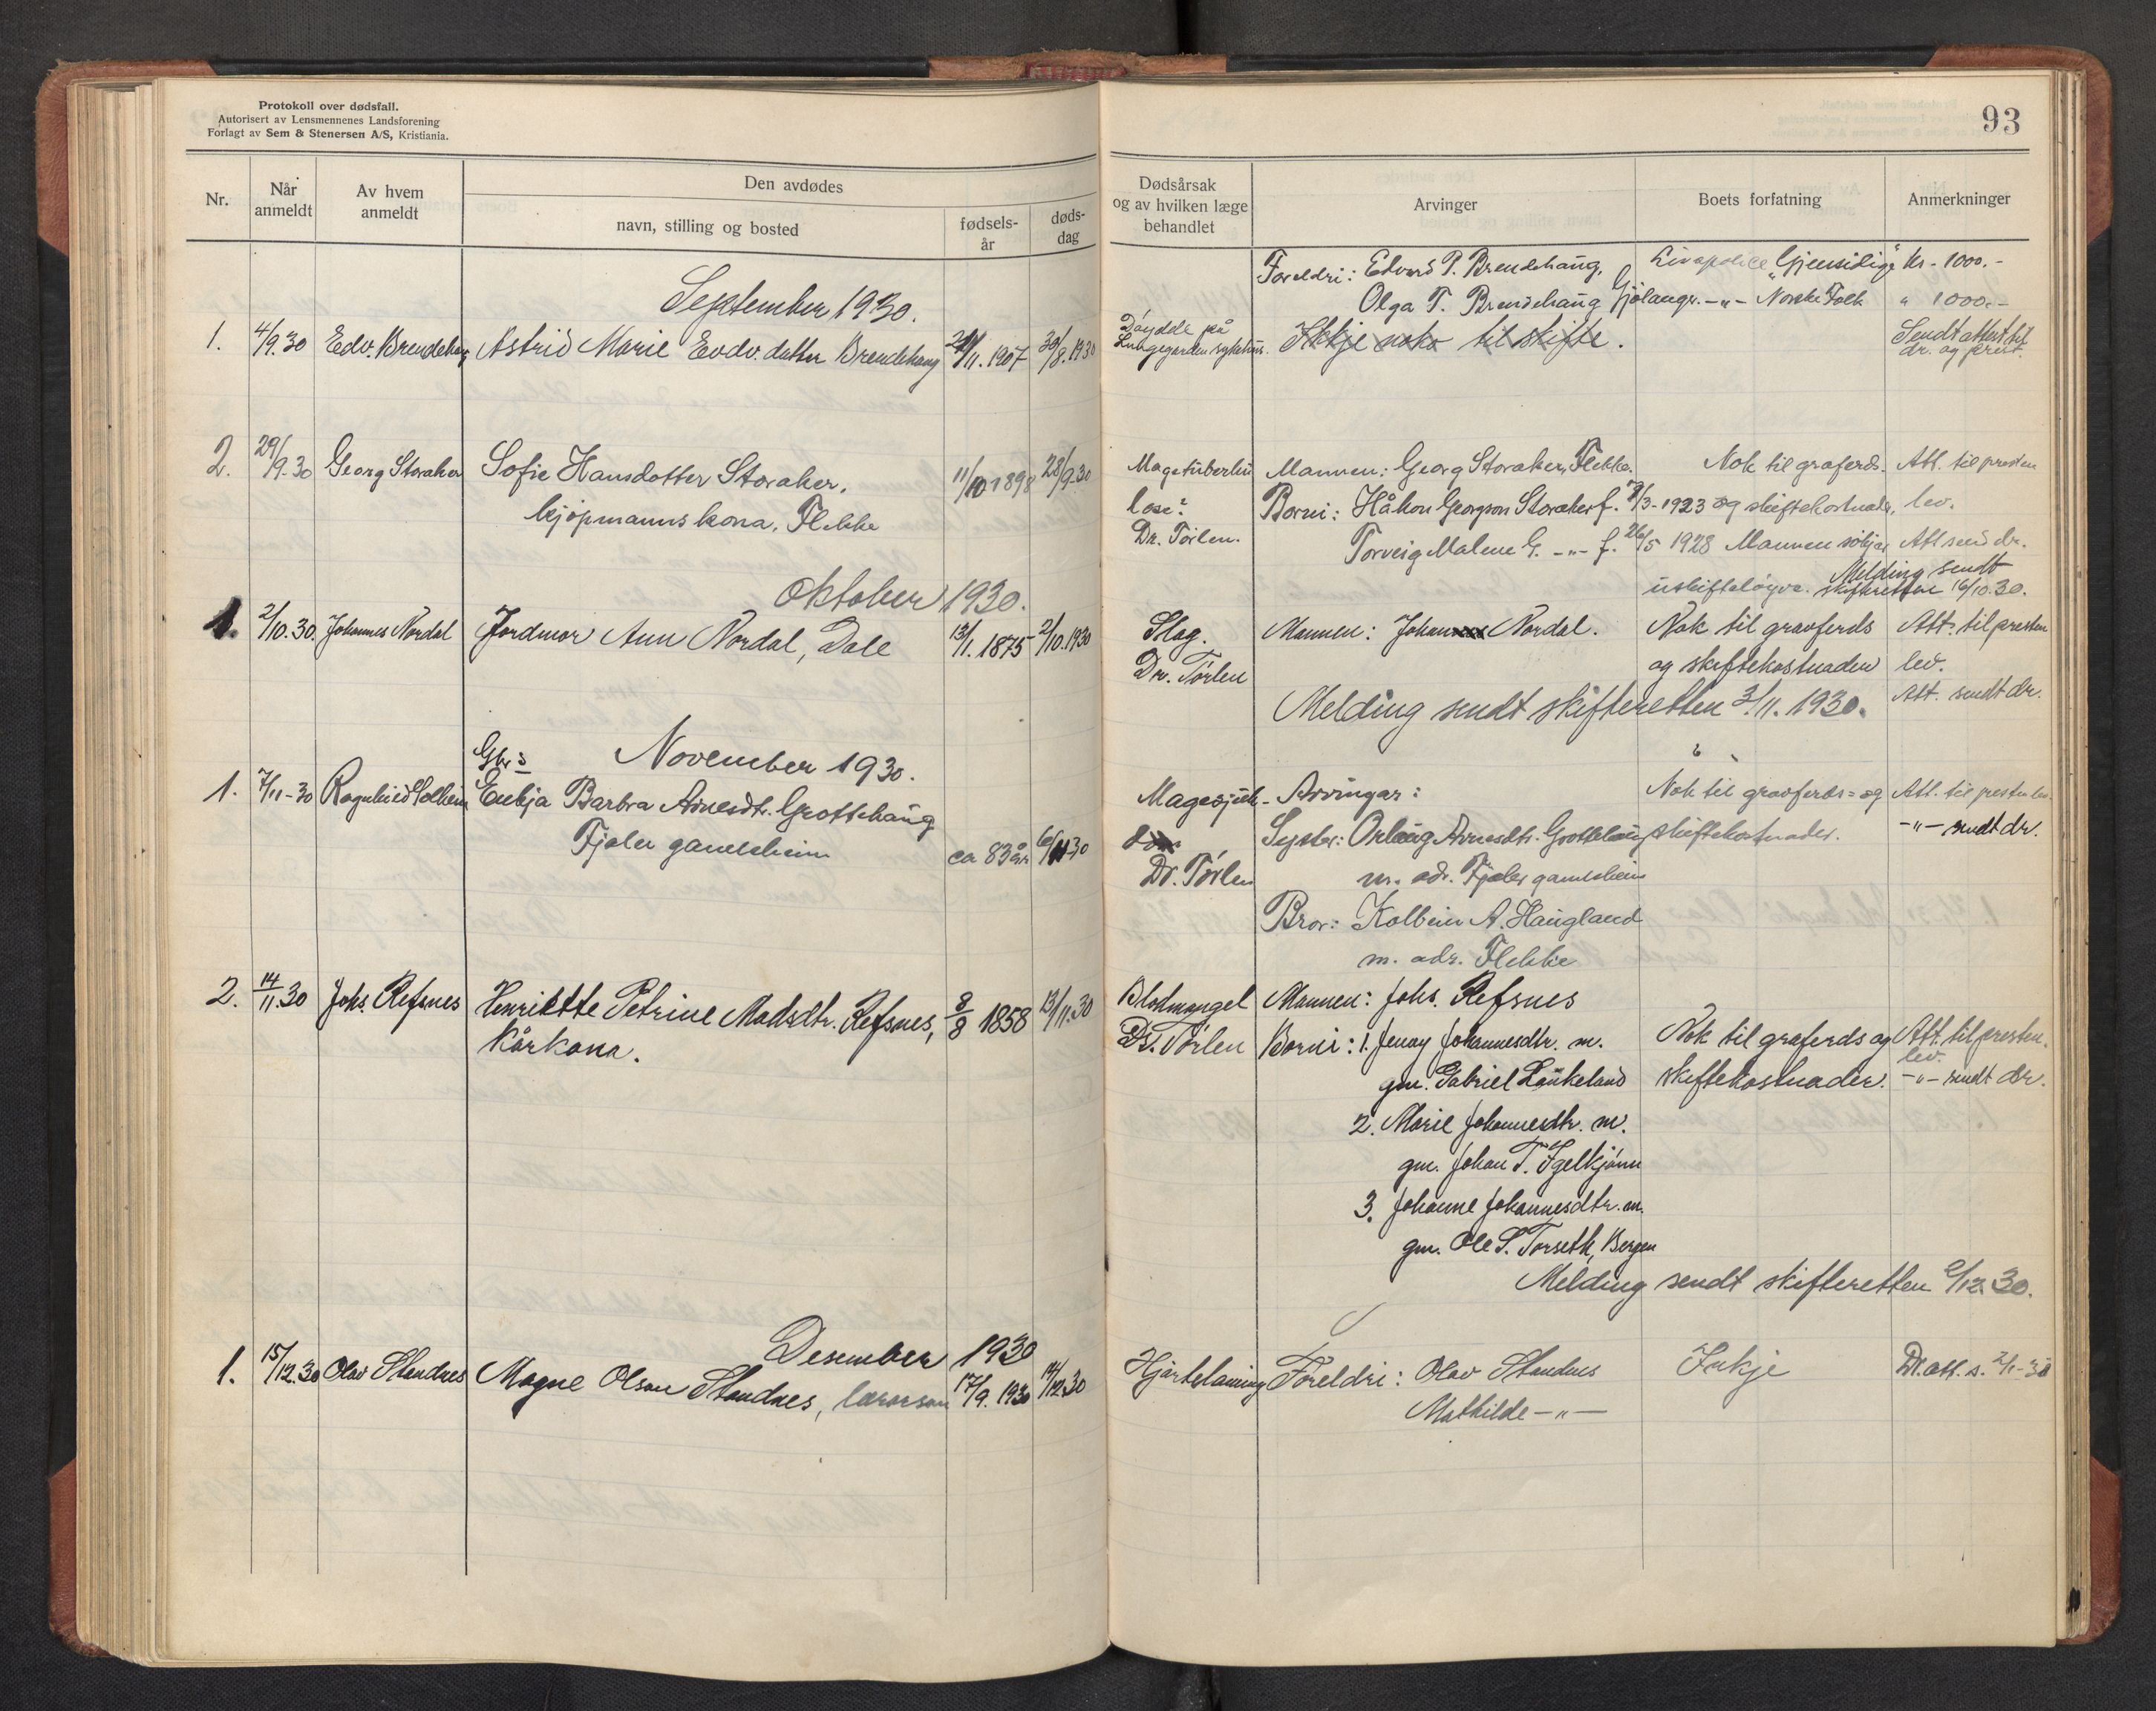 Protokoll over dødsfall.
Autorisert av Lensmennenes Landsforening
Forlagt av Sem & Stenersen A/S, Kristiania.
93
Nr.
Når anmeldt
Av hvem anmeldt
Den avdødes
navn, stilling og bosted
fødselsår
dødsdag
Dødsårsak og av hvilken læge behandlet
Arvinger
Boets forfatning
Anmerkninger
September 1930.
Foreldri: Edvard P. Brendehaug, Livspolice "Gjensidige" kr. 1000.-
Olga T. Brendehaug Gjølangr. -"- Norske Folk " 1000.-
1. 4/9.30 Edv. Brendehaug Astrid Marie Edv. datter Brendehaug /11. 1907 30/8.1930
Døydde på
Lungegarden sykehus.
Ikkje noko til skifte.
Sendt attest til
dr. og prest.
2. 29/9.30 Georg Storaker Sofie Hansdotter Storaker, 11/10 1898 28/9.30
kjøpmannskona, Flekke
Magetuberku
lose?
Dr. Tørlen.
Mannen: Georg Storaker, Flekke.
Borni: Håkon Georgson Storaker f. /3-1923
Torveig Malene G. -"- f. 26/5 1928
Nok til graferds-
og skiftekostnader.
Mannen søkjer
uskifteløyve.
Melding sendt
skifteretten 16/10.30.
Att. til presten
lev.
Att send dr.
Oktober 1930.
1. 2/10.30. Johannes Nordal Jordmor Ann Nordal, Dale 13/1. 1875 2/10.1930
Slag.
Dr. Tørlen
Mannen: Johan Nordal.
Nok til gravferds
og skiftekostnader
Att. til presten
lev.
Att. sendt dr.
Melding sendt skifteretten 3/11. 1930.
November 1930.
1. 7/11-30 Ragnhild Solheim Enkja Barbra Arnesdt. Grottehaug
Fjaler gamleheim ca 83 år 6/11 30
Magesjuk-
Dr. Tørlen
Arvingar:
Syster: Arnesdtr. Grottehaug
m. adr. Fjaler gamleheim
Bror: Kolbein A. Haugland
m. adr. Flekke
Nok til gravferds- og
skiftekostnader.
Att. til presten lev.
-"- sendt dr.
2. 14/11.30 Johs. Refsnes Henriette Petrine Madsdtr. Refsnes, 8/8 1858 13/11.30
Kårkona.
Blodmangel
Dr. Tørlen
Mannen: Johs. Refsnes
Borni: 1. Jenny Johannesdtr. m.
gm. Gabriel Laukeland
2. Marie Johannesdtr. m.
gm. Johan T. Igelkjønn
3. Johanne Johannesdtr. m.
gm. Ole S. Torseth, Bergen
Nok til graferds og
skiftekostnader.
Att. til presten.
lev.
-"- sendt dr.
Melding sendt skifteretten /12.30.
Desember 1930
1. 15/12.30 Olav Standnes Magne Olson Standnes, lærarson 17/9. 1930 14/12.30
Hjartelaming
Foreldri: Olav Standnes
Mathilde -"-
Inkje
Dr. att. s. 2/1-31